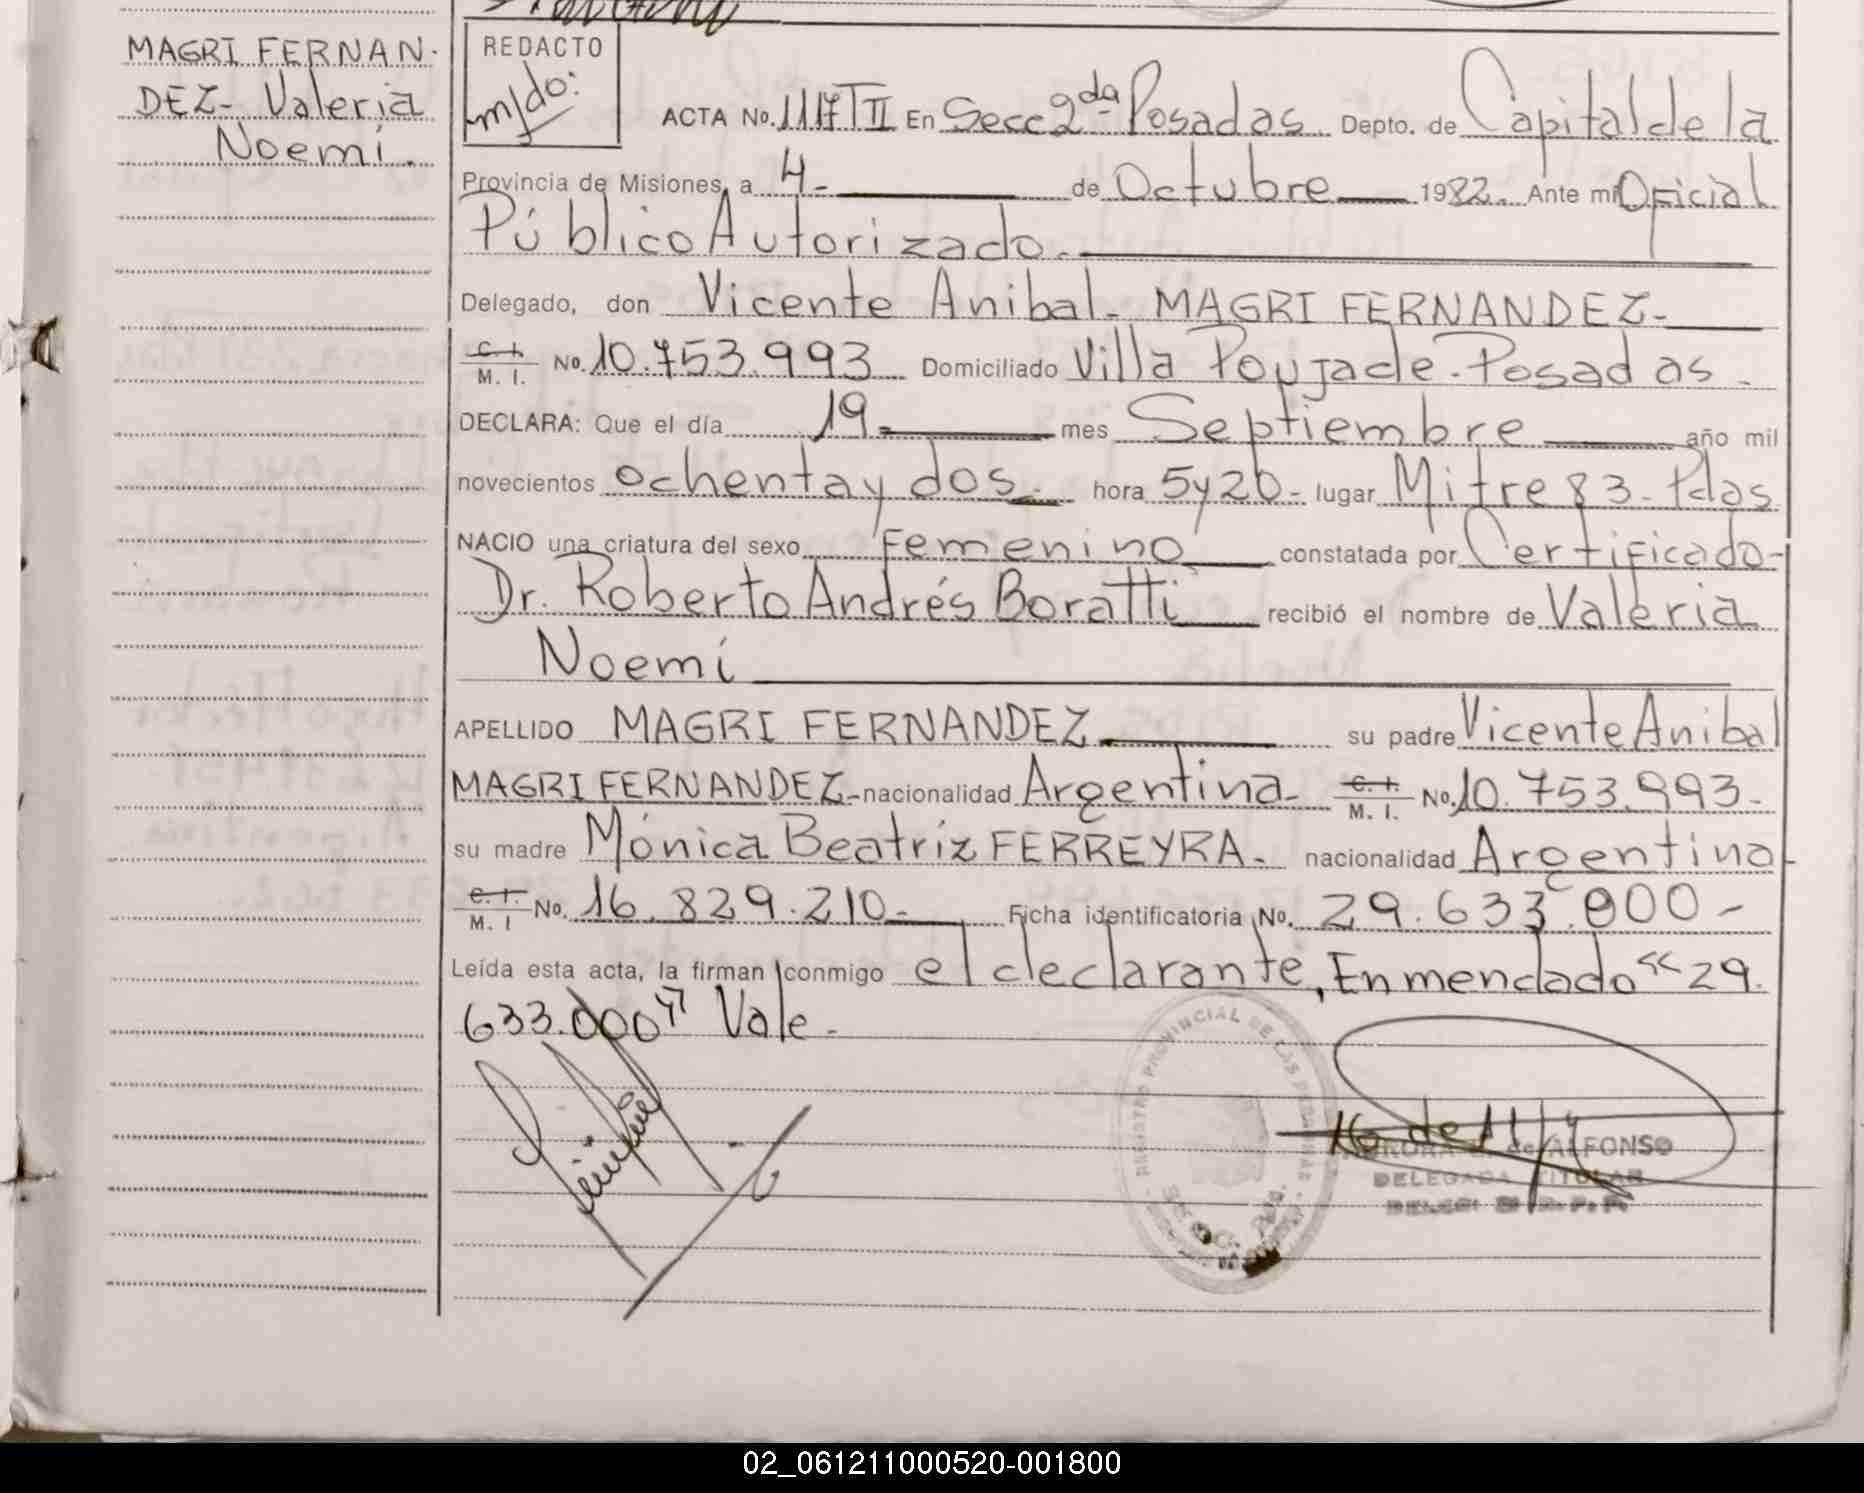 MAGRI FERNAN-
DEZ- Valeria
Noemí.
REDACTO
m/do:
ACTA No. 1117 T II En Secc 2da- Posadas Depto. de Capital de la
Provincia de Misiones, a 4- de Octubre 1982. Ante mi Oficial
Público Autorizado.
Delegado, don Vicente Anibal- MAGRI FERNANDEZ-
C. I.
M. I. No. 10.753.993 Domiciliado Villa Poujade-Posadas-
DECLARA: Que el día 19- mes Septiembre año mil
novecientos ochenta y dos. hora 5y20- lugar Mitre 83- Pdas
NACIO una criatura del sexo Femenino constatada por Certificado-
Dr. Roberto Andrés Boratti recibió el nombre de Valeria
Noemí
APELLIDO MAGRI FERNANDEZ su padre Vicente Anibal
MAGRI FERNANDEZ- nacionalidad Argentina- C. I.
M. I. No. 10.753.993-
su madre Mónica Beatríz FERREYRA- nacionalidad Argentina-
C. I.
M. I No. 16.829.210- Ficha identificatoria No. 29.633.000-
Leída esta acta, la firman conmigo el declarante, Enmendado "29.
633.000" Vale-
REGISTRO PROVINCIAL DE LAS PERSONAS
de ALFONSO
DELEGADA TITULAR
02_061211000520-001800